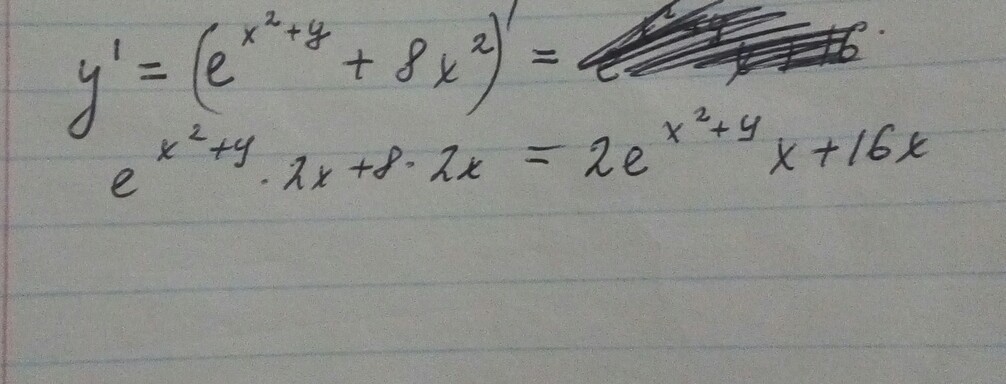 y' = (e^{x^2+y} + 8x^2)' =
e^{x^2+y} · 2x + 8 · 2x = 2e^{x^2+y} x + 16x